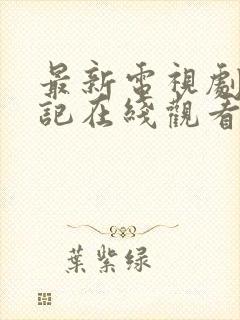 最新電視劇
記在綫觀看
葉紫緑